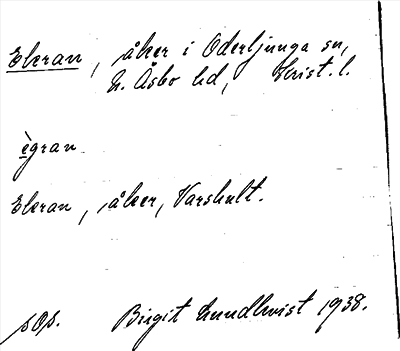 Ekran, åker i Oderljunga sn,
N. Åsbo hd, Krist. l.
ègran
Ekran, åker, Varshult.
sOp. Birgit Lundkvist 1938.